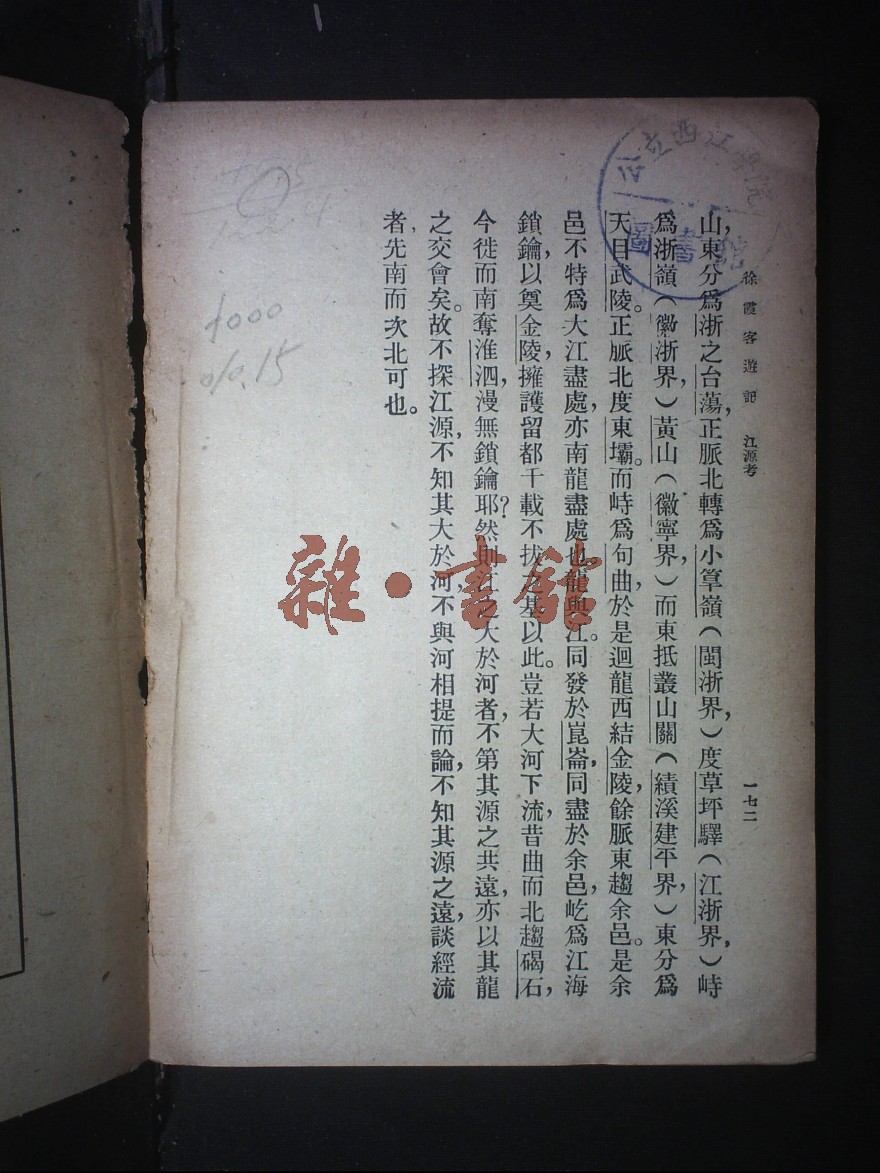 徐霞客遊記 江源考 一七二
山東分爲浙之台蕩，正脈北轉爲小箄嶺（閩浙界，）度草坪驛（江浙界，）峙
爲浙嶺（徽浙界，）黃山（徽寧界，）而東抵叢山關（績溪建平界，）東分爲
天目武陵。正脈北度東壩。而峙爲句曲，於是迴龍西結金陵，餘脈東趨余邑。是余
邑不特爲大江盡處，亦南龍盡處也龍與江。同發於崑崙，同盡於余邑，屹爲江海
鎖鑰，以奠金陵，擁護留都千載不拔之基以此。豈若大河下流，昔曲而北趨碣石，
今徙而南奪淮泗，漫無鎖鑰耶？然則江之大於河者，不第其源之共遠，亦以其龍
之交會矣。故不探江源，不知其大於河，不與河相提而論，不知其源之遠，談經流
者，先南而次北可也。
公立西江學院
圖書館
雜·書館
1000